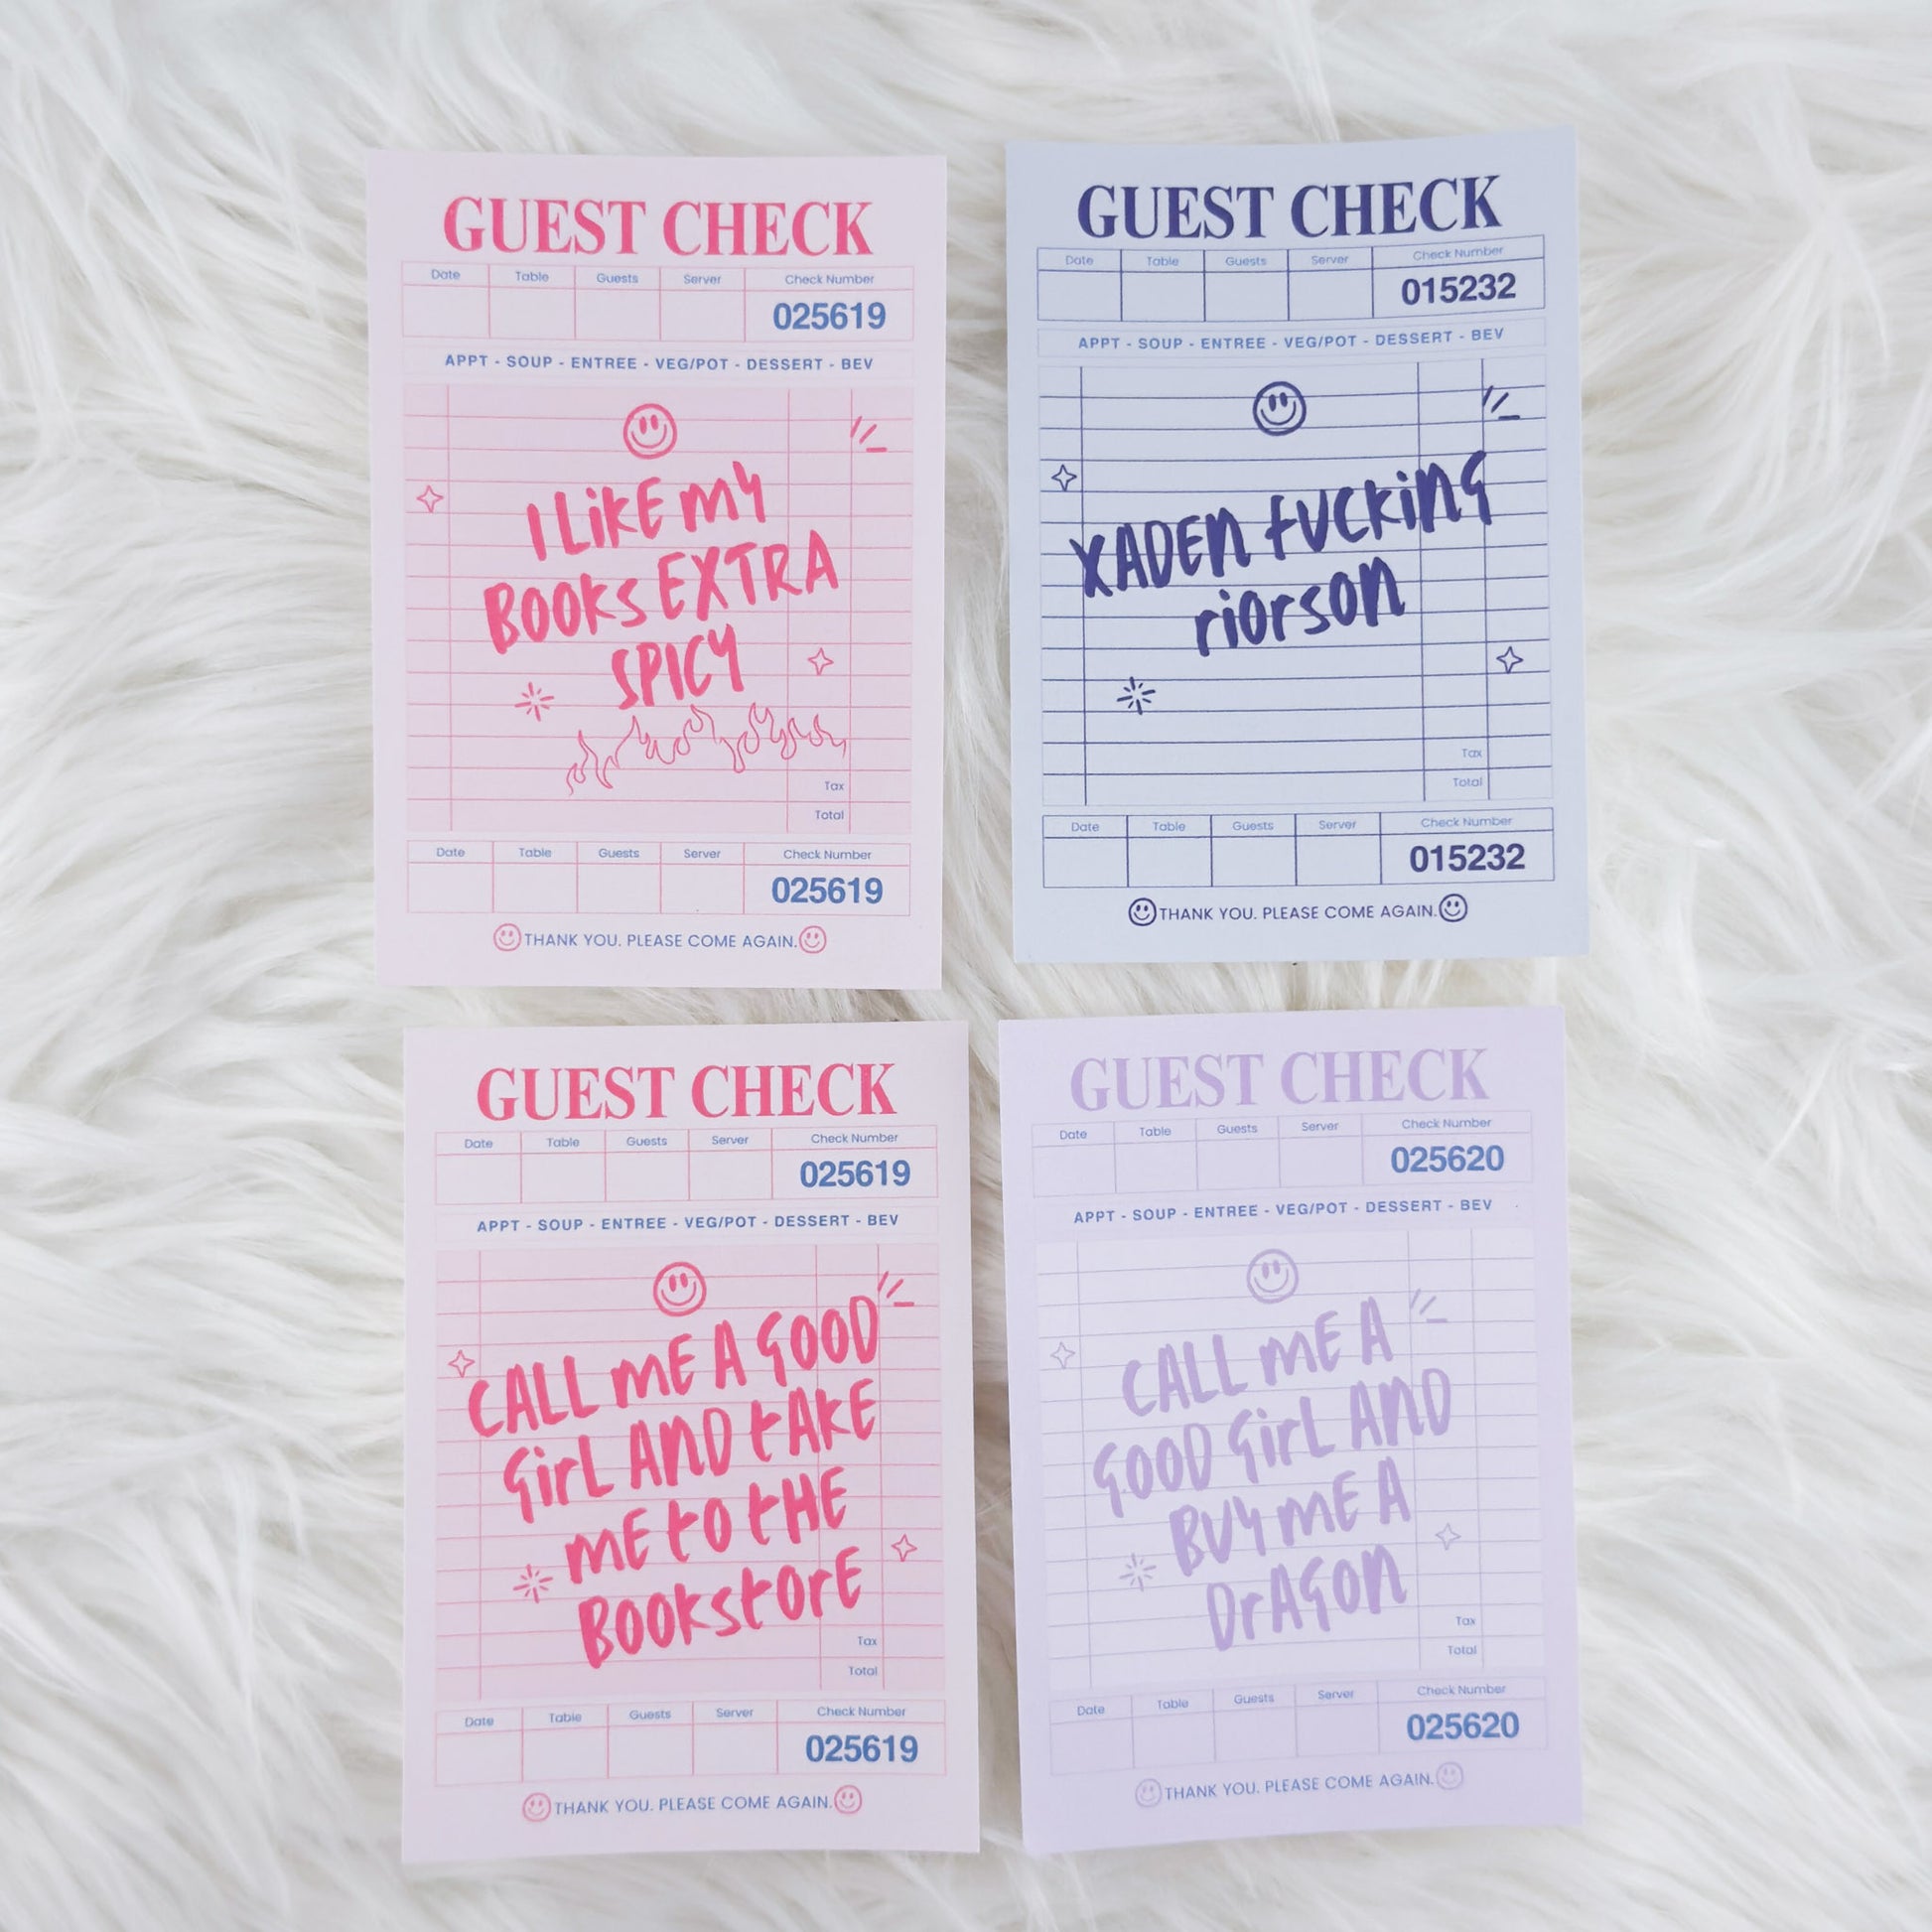 GUEST CHECK
Date Table Guests Server Check Number
025619
APPT - SOUP - ENTREE - VEG/POT - DESSERT - BEV
I LiKE my
BOOKS EXTRA
SPICY
Tax
Total
Date Table Guests Server Check Number
025619
THANK YOU. PLEASE COME AGAIN.
GUEST CHECK
Date Table Guests Server Check Number
015232
APPT - SOUP - ENTREE - VEG/POT - DESSERT - BEV
XADEn fUCKinG
riOrsOn
Tax
Total
Date Table Guests Server Check Number
015232
THANK YOU. PLEASE COME AGAIN.
GUEST CHECK
Date Table Guests Server Check Number
025619
APPT - SOUP - ENTREE - VEG/POT - DESSERT - BEV
CALL mE A GOOD
GirL AnD tAKE
mE tO tHE
BOOKstOrE
Tax
Total
Date Table Guests Server Check Number
025619
THANK YOU. PLEASE COME AGAIN.
GUEST CHECK
Date Table Guests Server Check Number
025620
APPT - SOUP - ENTREE - VEG/POT - DESSERT - BEV
CALL mE A
GOOD GirL AnD
BUy mE A
DrAGOn
Tax
Total
Date Table Guests Server Check Number
025620
THANK YOU. PLEASE COME AGAIN.